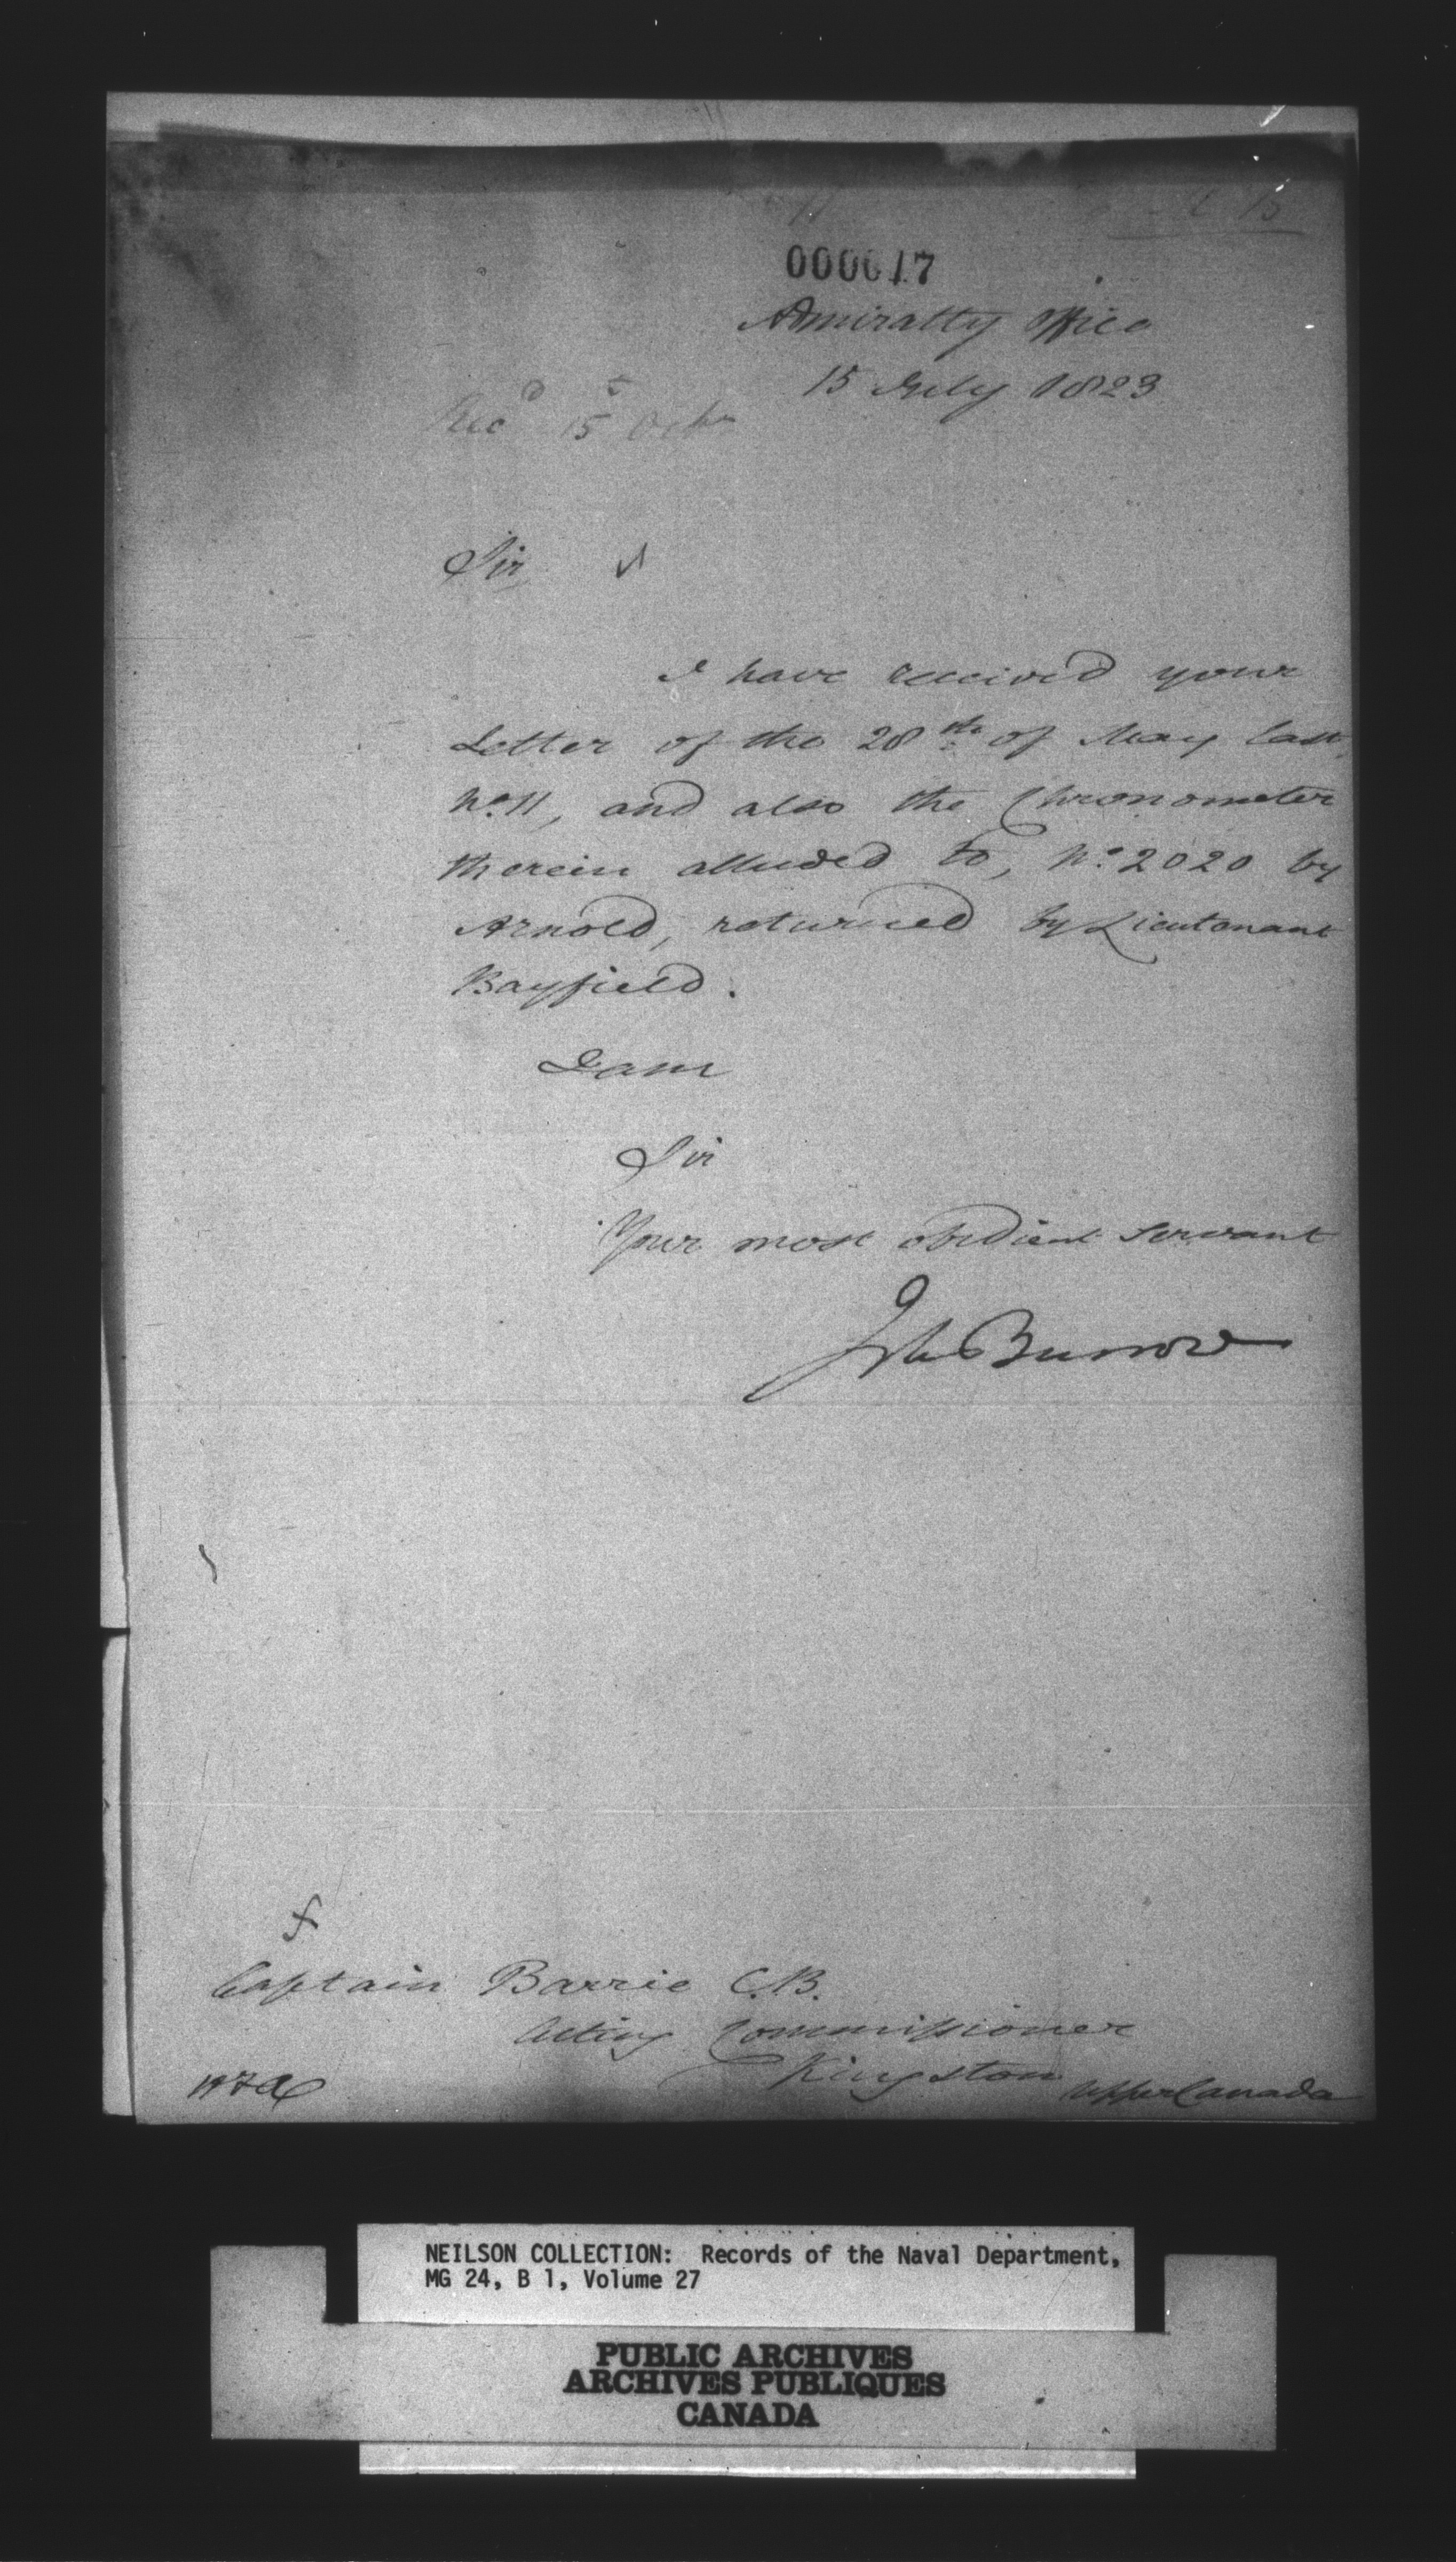 11
15
000017
Admiralty Office
15 July 1823
Recd 15t Octr
Sir
I have received your
Letter of the 28th of May last,
No. 11, and also the Chronometer
therein alluded to, No. 2020 by
Arnold, returned by Lieutenant
Bayfield.
I am
Sir
Your most obedient Servant
Jn Barrow
Captain Barrie C.B.
Acting Commissioner
Kingston Upper Canada
NEILSON COLLECTION: Records of the Naval Department,
MG 24, B 1, Volume 27
PUBLIC ARCHIVES
ARCHIVES PUBLIQUES
CANADA